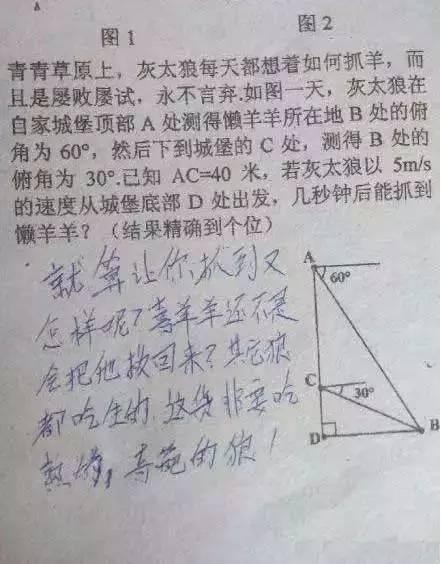 图 1
图 2
青青草原上，灰太狼每天都想着如何抓羊，而
且是屡败屡试，永不言弃.如图一天，灰太狼在
自家城堡顶部 A 处测得懒羊羊所在地 B 处的俯
角为 60°，然后下到城堡的 C 处，测得 B 处的
俯角为 30°.已知 AC=40 米，若灰太狼以 5m/s
的速度从城堡底部 D 处出发，几秒钟后能抓到
懒羊羊？（结果精确到个位）
就算让你抓到又
怎样呢？喜羊羊还不是
会把他救回来？其它狼
都吃生的，这货非要吃
熟的，奇葩的狼！
A
60°
C
30°
D
B